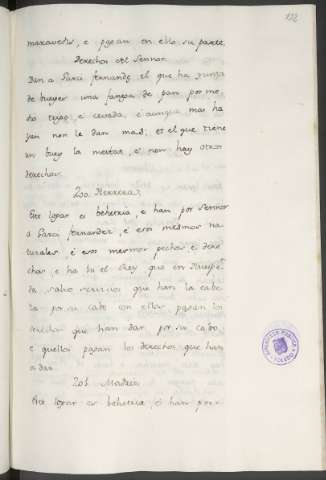 122
maravedis, e pagan en ella su parte.
Derechos del Sennor.
Dan a Garci fernandz el que ha yunta
de bueyes una fanega de pan por me-
dio trigo, e cevada, e aunque mas ha-
yan non le dan mas, et el que tiene
un buey la meetat, e non hay otros
derechos.
200. Herrera
Este logar es behetria, e han por Sennor
a Garci fernandez, e esos mesmos na-
turales, e esos mesmos pechos e dere-
chos, e ha hi el Rey que en
da, salvo servicios que han la cabe-
za por su cabo en ellos pagan los
que han dar por su cabo,
e quellos pagan los derechos que han
a dar.
201. Madera
Este logar es behetria, e han por
BIBLIOTECA PUBLICA
TOLEDO